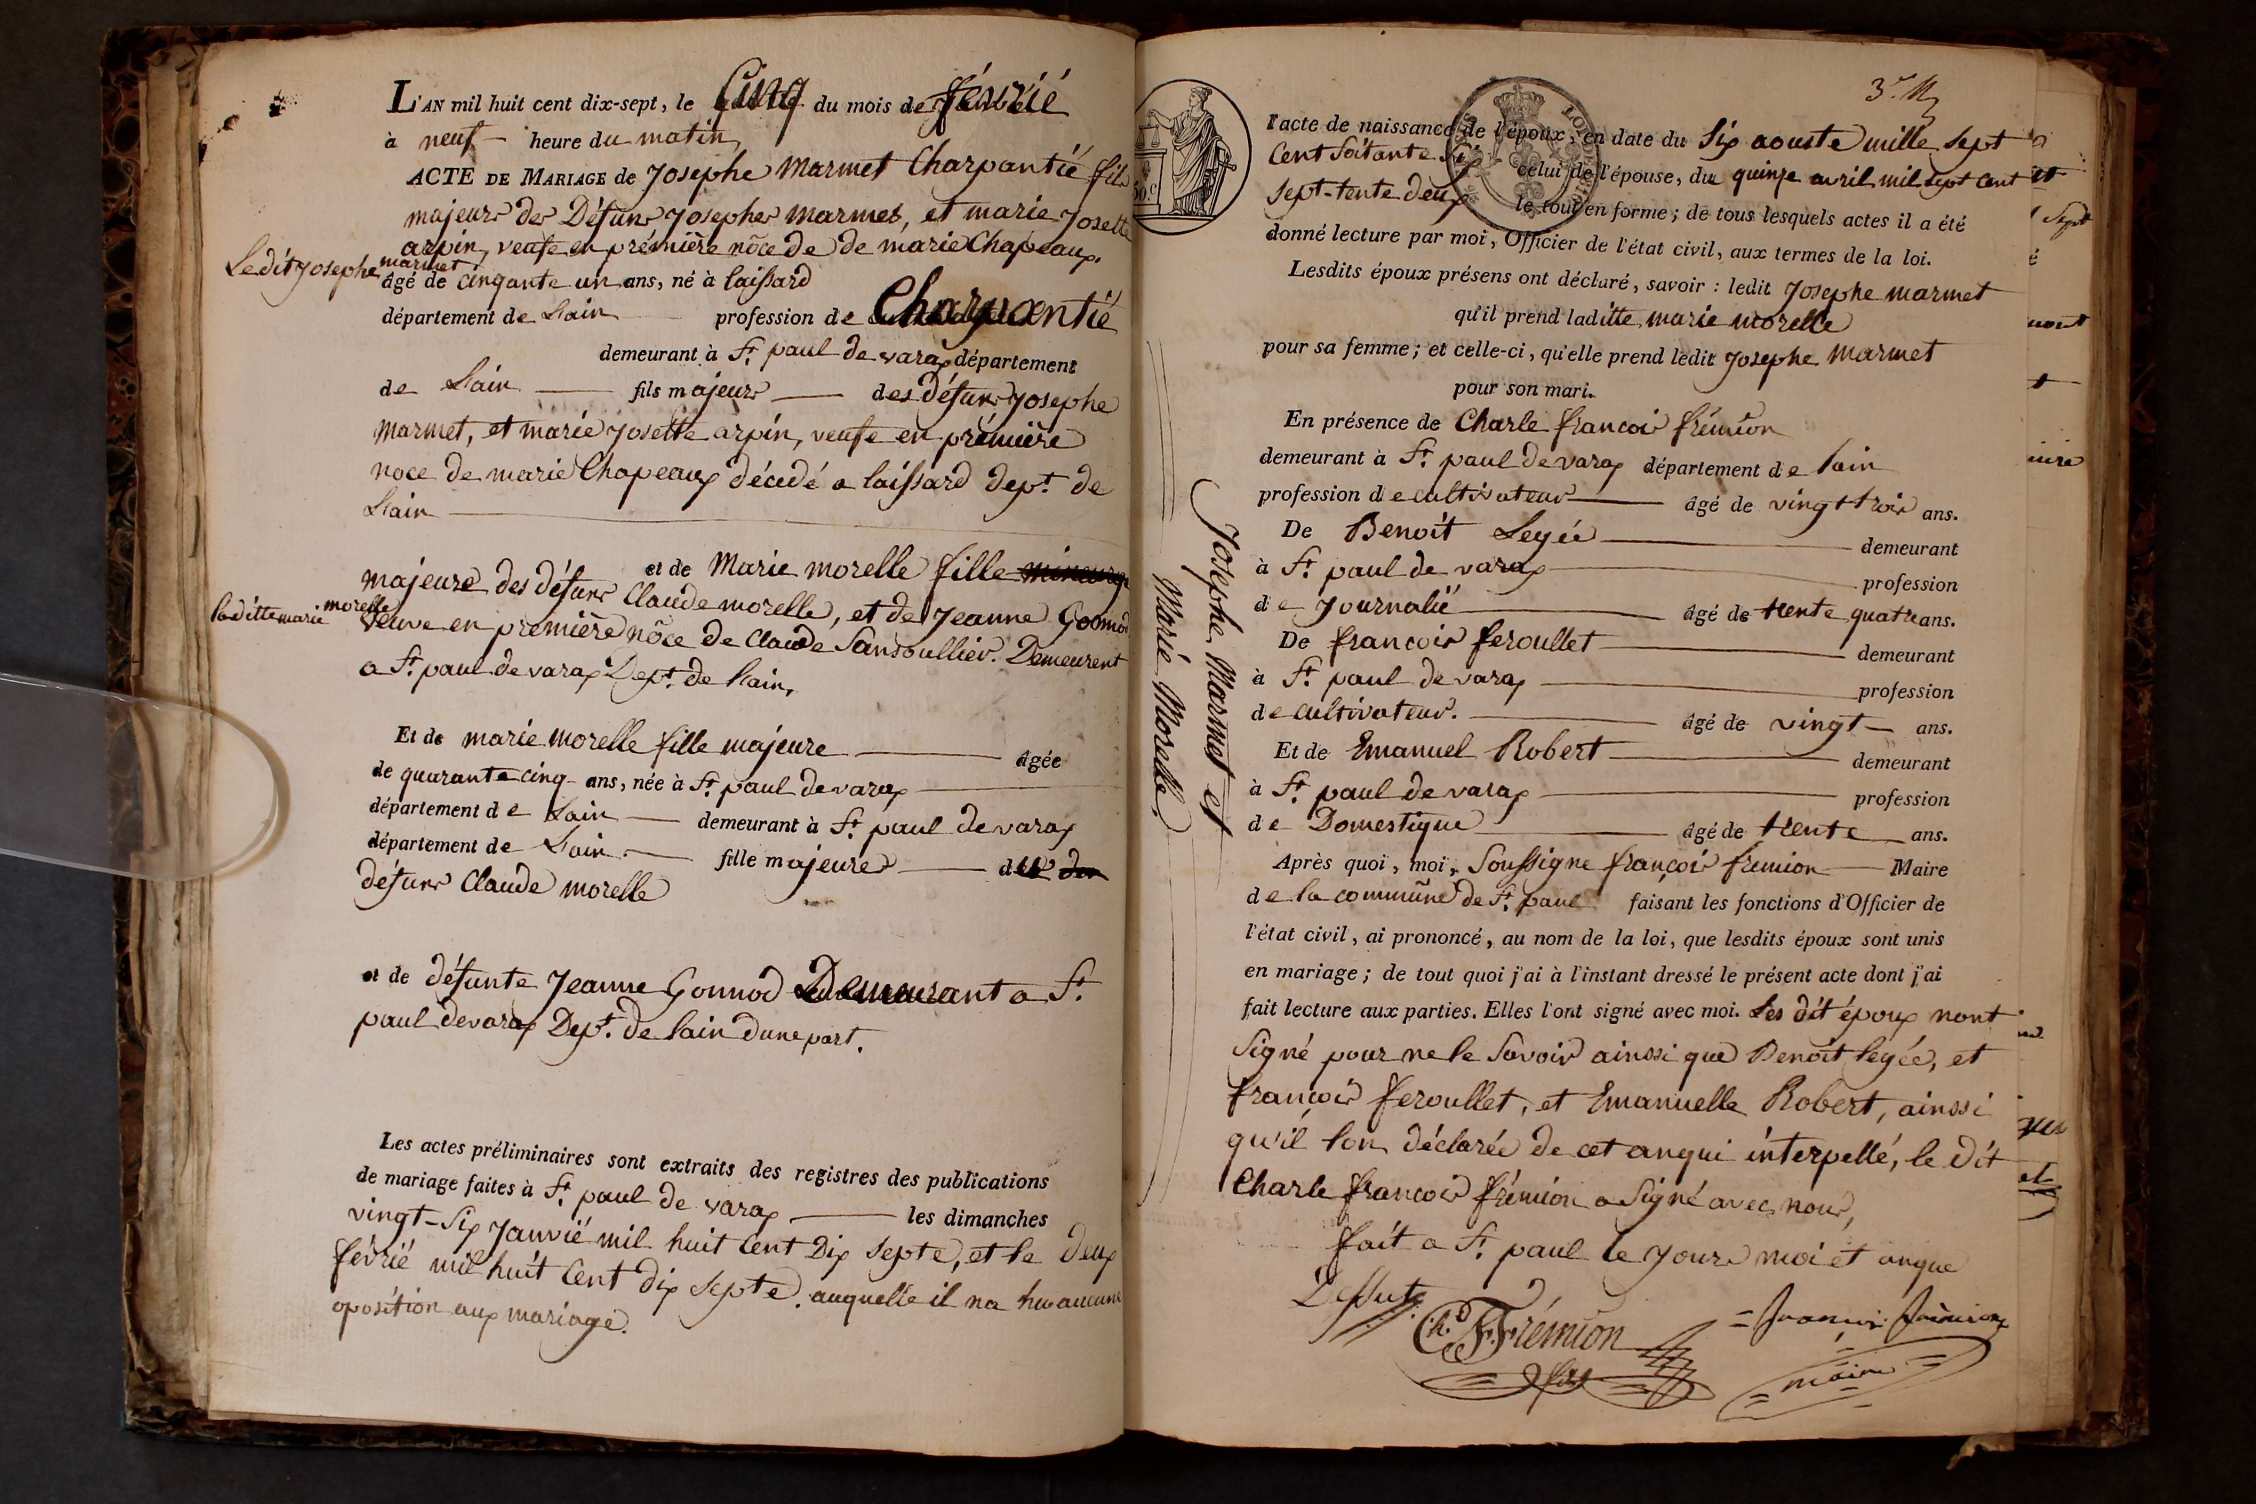 L'AN mil huit cent dix-sept, le Cinq du mois de févrié
à neuf heure du matin
ACTE DE MARIAGE de Josephe Marmet Charpantié fils
majeur des Défuns Josephe marmet, et marie Josette
arpin, veufe en prémière nôce de de marie Chapeaux.
Ledit Josephe marmet
âgé de cinqante un ans, né à laissard
département de Lain profession de Charpantié
demeurant à St. paul de varax département
de Lain fils majeur des défuns Josephe
Marmet, et marie Josette arpin, veufe en prémière
noce de marie Chapeaux décédé a laissard dept. de
Lain
et de Marie morelle fille
majeure des défuns Claude morelle, et de Jeanne Gonnod
laditte marie morelle
veuve en première nôce de Claude Sansoullier. Demeurent
a St. paul de varax Dept. de Lain,
Et de marie morelle fille majeure âgée
de quarante cinq ans, née à St. paul de varax
département de Lain demeurant à St. paul de varax
département de Lain fille majeure de
défuns Claude morelle
et de défunte Jeanne Gonnod Demeurant a St.
paul de varax Dept. de Lain dune part.
Les actes préliminaires sont extraits des registres des publications
de mariage faites à St. paul de varax les dimanches
vingt-Six Janvié mil huit Cent Dix Septe, et le deux
févrié mil huit Cent dix septe. auquelle il na hu aucune
oposition aux mariage.
3e. M
l'acte de naissance de l'époux, en date du Six aouste mille sept
Cent Soitante Six celui de l'épouse, du quinze avril mil sept cent
sept-tente deux le tout en forme; de tous lesquels actes il a été
donné lecture par moi, Officier de l'état civil, aux termes de la loi.
Lesdits époux présens ont déclaré, savoir : ledit Josephe marmet
qu'il prend laditte marie morelle
pour sa femme; et celle-ci, qu'elle prend ledit Josephe Marmet
pour son mari.
En présence de Charle francois frémion
demeurant à St. paul de varax département de Lain
profession de cultivateur âgé de vingt trois ans.
De Benoit Legée demeurant
à St. paul de varax profession
de Journalié âgé de trente quatre ans.
De francois feroullet demeurant
à St. paul de varax profession
de cultivateur. âgé de vingt ans.
Et de Emanuel Robert demeurant
à St. paul de varax profession
de Domestique âgé de trente ans.
Après quoi, moi, Soussigne françois fremion Maire
de la commune de St. paul faisant les fonctions d'Officier de
l'état civil, ai prononcé, au nom de la loi, que lesdits époux sont unis
en mariage; de tout quoi j'ai à l'instant dressé le présent acte dont j'ai
fait lecture aux parties. Elles l'ont signé avec moi. Les dit époux nont
Signé pour ne le Savoir ainssi que Benoit legée, et
francois feroullet, et Emanuelle Robert, ainssi
qu'il lon déclarée de cet anqui interpellé, le dit
Charle francois frémion a Signé avec nous,
fait a St. paul le Jour moi et anque
Dessut
Ch. F. Frémion
fils
francois frémion
maire
Josephe Marmet et
Marie Morelle.